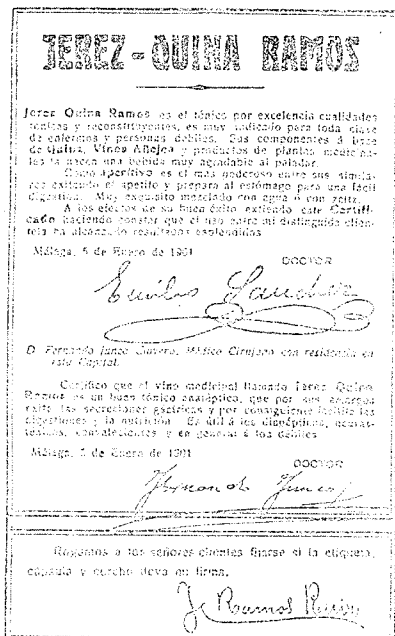 JEREZ-QUINA RAMOS
Jerez Quina Ramos es el tónico por excelencia cualidades
tónicas y reconstituyentes, es muy indicado para toda clase
de enfermos y personas débiles. Sus componentes á base
de Quina, Vinos Añejos y productos de plantas medicina-
les la hacen una bebida muy agradable al paladar.
Como aperitivo es el más poderoso entre sus simila-
res exitando el apetito y prepara al estómago para una fácil
digestión. Muy exquisito mezclado con agua ó con zeltz.
A los efectos de su buen éxito extiendo este Certifi-
cado haciendo constar que el uso entre mi distinguida clien-
tela ha alcanzado resultados espléndidos.
Málaga, 5 de Enero de 1901
DOCTOR
Emilio Sanchez
D. Fernando Junco, Médico Cirujano con residencia en
esta Capital.
Certifico que el vino medicinal llamado Jerez Quina
Ramos es un buen tónico analéptico, que por sus amargos
exita las secreciones gástricas y por consiguiente facilita las
digestiones y la nutrición. Es útil á los dispépticos, neuras-
ténicos, convalecientes y en general á los débiles.
Málaga, 2 de Enero de 1901
DOCTOR
Fernando Junco
Rogamos a los señores clientes fijarse si la etiqueta,
cápsula y corcho lleva mi firma.
J. Ramos